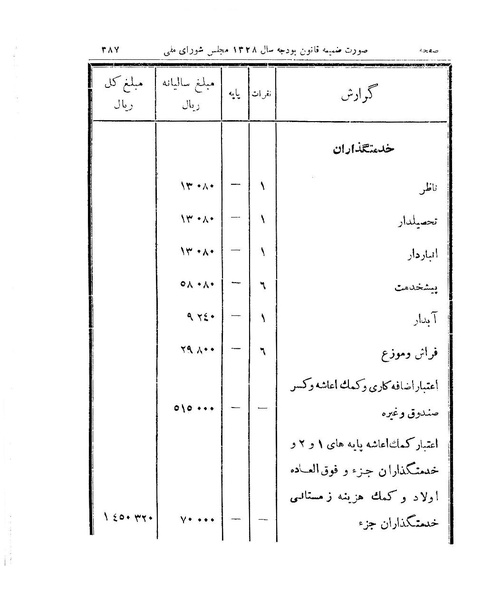 صفحه صورت ضمیمه قانون بودجه سال ۱۳۲۸ مجلس شورای ملی ۳۸۷
گزارش نفرات پایه مبلغ سالیانه ریال مبلغ کل ریال
خدمتگذاران
ناظر ۱ — ۱۳۰۸۰
تحصیلدار ۱ — ۱۳۰۸۰
انباردار ۱ — ۱۳۰۸۰
پیشخدمت ٦ — ۵۸۰۸۰
آبدار ۱ — ۹۲٤۰
فراش وموزع ٦ — ۲۹۸۰۰
اعتبار اضافه کاری و کمك اعاشه و کسر
صندوق وغیره — — ۵۱۵۰۰۰
اعتبار کمك اعاشه پایه های ۱ و ۲ و
خدمتگذاران جزء و فوق العاده
اولاد و کمك هزینه زمستانی
خدمتگذاران جزء — — ۷۰۰۰۰ ۱٤۵۰۳۲۰